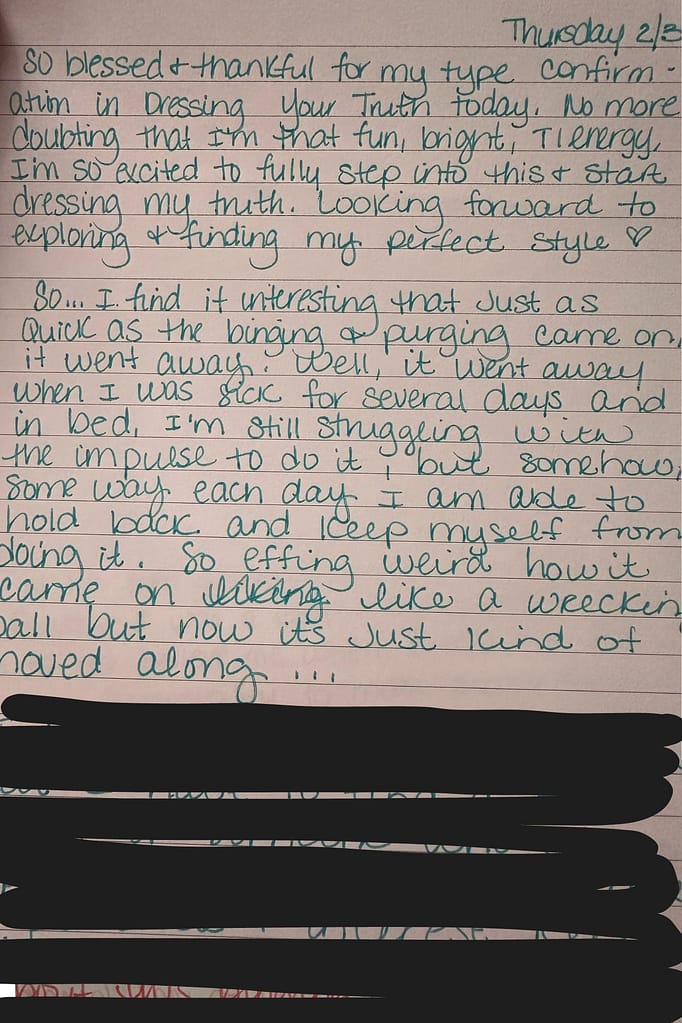 Thursday 2/3
So blessed & thankful for my type confirm-
ation in Dressing Your Truth today. No more
doubting that I'm that fun, bright, T1 energy.
I'm so excited to fully step into this & start
dressing my truth. Looking forward to
exploring & finding my perfect style ♡
So... I find it interesting that just as
quick as the binging & purging came on,
it went away. Well, it went away
when I was sick for several days and
in bed, I'm still struggling with
the impulse to do it, but somehow,
some way each day I am able to
hold back and keep myself from
doing it. So effing weird how it
came on like a wreckin
ball but now it's just kind of
moved along...